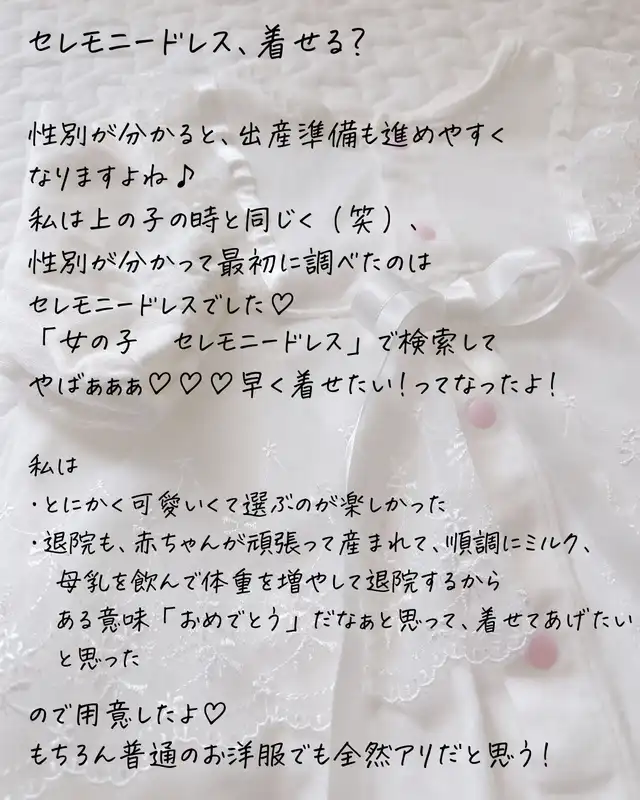 セレモニードレス、着せる?
性別が分かると、出産準備も進めやすく
なりますよね♪
私は上の子の時と同じく(笑)、
性別が分かって最初に調べたのは
セレモニードレスでした♡
「女の子　セレモニードレス」で検索して
やばぁぁぁ♡♡♡早く着せたい!ってなったよ!
私は
・とにかく可愛いくて選ぶのが楽しかった
・退院も、赤ちゃんが頑張って産まれて、順調にミルク、
母乳を飲んで体重を増やして退院するから
ある意味「おめでとう」だなぁと思って、着せてあげたい
と思った
ので用意したよ♡
もちろん普通のお洋服でも全然アリだと思う!